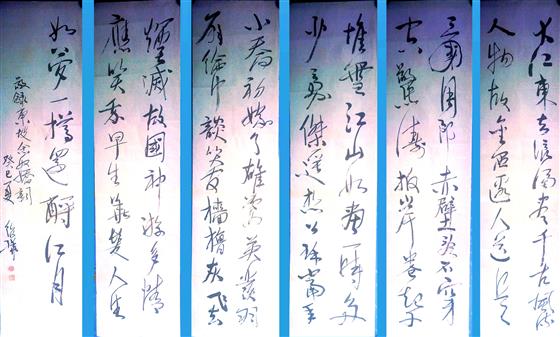 大江東去浪淘盡千古風流
人物故壘西邊人道是
三國周郎赤壁亂石穿
空驚濤拍岸卷起千
堆雪江山如畫一時多
少豪傑遙想公瑾當年
小喬初嫁了雄姿英發羽
扇綸巾談笑間檣櫓灰飛
煙滅故國神遊多情
應笑我早生華髮人生
如夢一樽還酹江月
敬錄東坡念奴嬌詞
癸巳夏